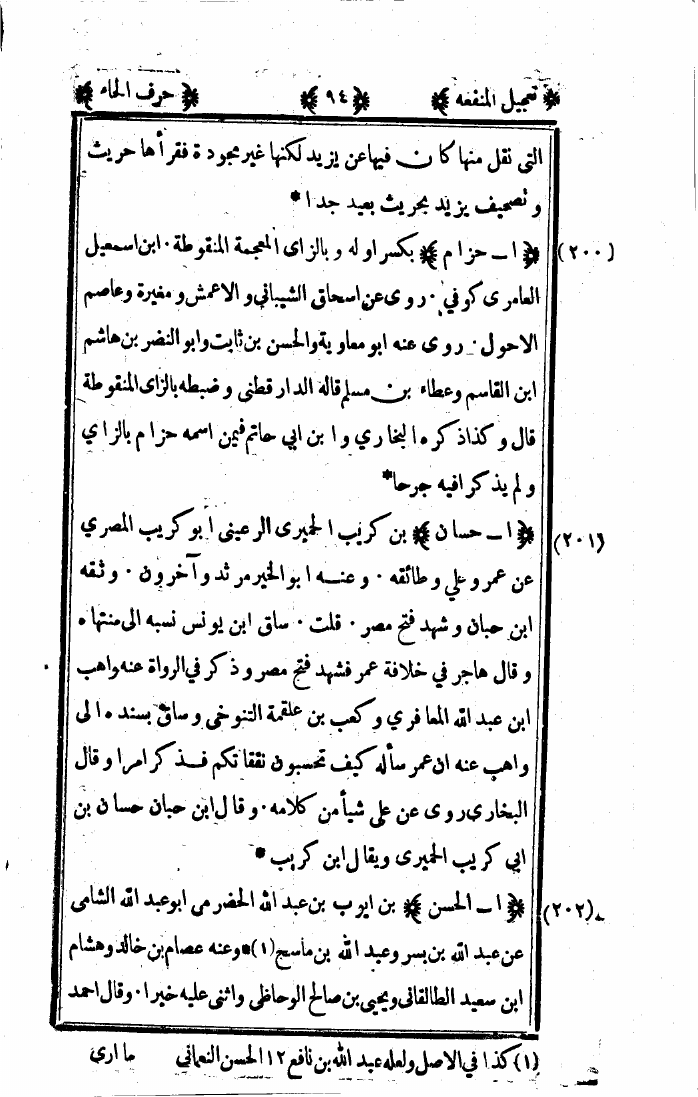 ﴿ تعجيل المنفعه ﴾ ﴿ ٩٤ ﴾ ﴿ حرف الحاء ﴾
التى نقل منها كان فيها عن يزيد لكنها غير مجودة فقرأها حريث
و تصحيف يزيد بحريث بعيد جدا *
(٢٠٠) ﴿ ا ـ حزام ﴾ بكسر اوله و بالزاى المعجمة المنقوطة . ابن اسمعيل
العامرى كوفي . روى عن اسحاق الشيبانى و الاعمش و مغيرة وعاصم
الاحول . روى عنه ابو معاوية والحسن بن ثابت وابو النضر بن هاشم
ابن القاسم وعطاء بن مسلم قاله الدار قطنى و ضبطه بالزاى المنقوطة
قال و كذا ذكره البخاري و ابن ابي حاتم فيمن اسمه حزام بالزاي
و لم يذكرا فيه جرحا *
(٢٠١) ﴿ ا ـ حسان ﴾ بن كريب الحميرى الرعينى ابو كريب المصري
عن عمر و علي و طائفه . و عنه ابو الخير مرثد و آخرون . و ثقه
ابن حبان و شهد فتح مصر . قلت . ساق ابن يونس نسبه الى منتهاه
و قال هاجر في خلافة عمر فشهد فتح مصر و ذكر في الرواة عنه واهب
ابن عبد الله المعافري و كعب بن علقمة التنوخى و ساق بسنده الى
واهب عنه ان عمر سأله كيف تحسبون نفقاتكم فذكر امرا و قال
البخارى روى عن على شيأ من كلامه . و قال ابن حبان حسان بن
ابي كريب الحميرى ويقال ابن كريب *
(٢٠٢) ﴿ ا ـ الحسن ﴾ بن ايوب بن عبد الله الحضرمى ابو عبد الله الشامى
عن عبد الله بن بسر وعبد الله بن ماسج (١) * وعنه عصام بن خالد و هشام
ابن سعيد الطالقانى و يحيى بن صالح الوحاظى و اثنى عليه خيرا . وقال احمد
(١) كذا في الاصل ولعله عبد الله بن نافع ١٢ الحسن النعمانى ما ارى